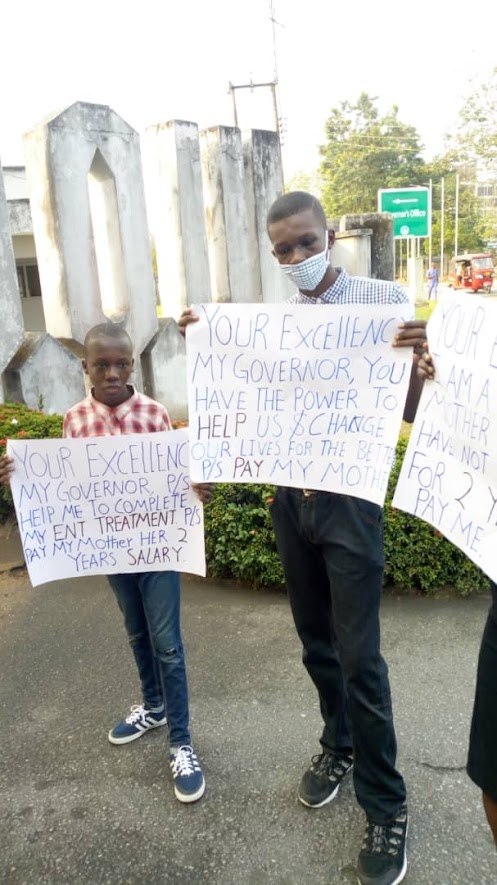 YOUR EXCELLENC
MY GOVERNOR, P/S
HELP ME TO COMPLETE
MY ENT TREATMENT. P/S
PAY MY MOTHER HER 2
YEARS SALARY.
YOUR EXCELLENCY
MY GOVERNOR, YOU
HAVE THE POWER TO
HELP US & CHANGE
OUR LIVES FOR THE BETTE
P/S PAY MY MOTHE
YOUR E
I AM A
MOTHER
HAVE NOT
FOR 2 Y
PAY ME.
Office